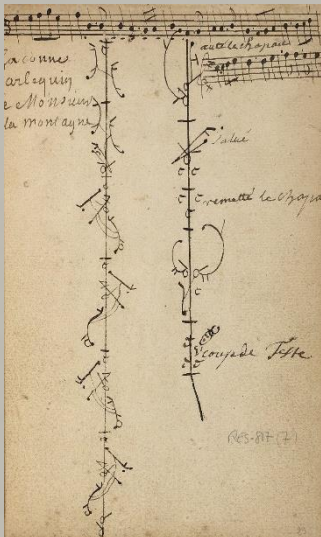 aconne
arlequin
e Monsieur
la montagne
auté le chapau
salué
remetté le chapa
coup de Teste
RES-817(7)